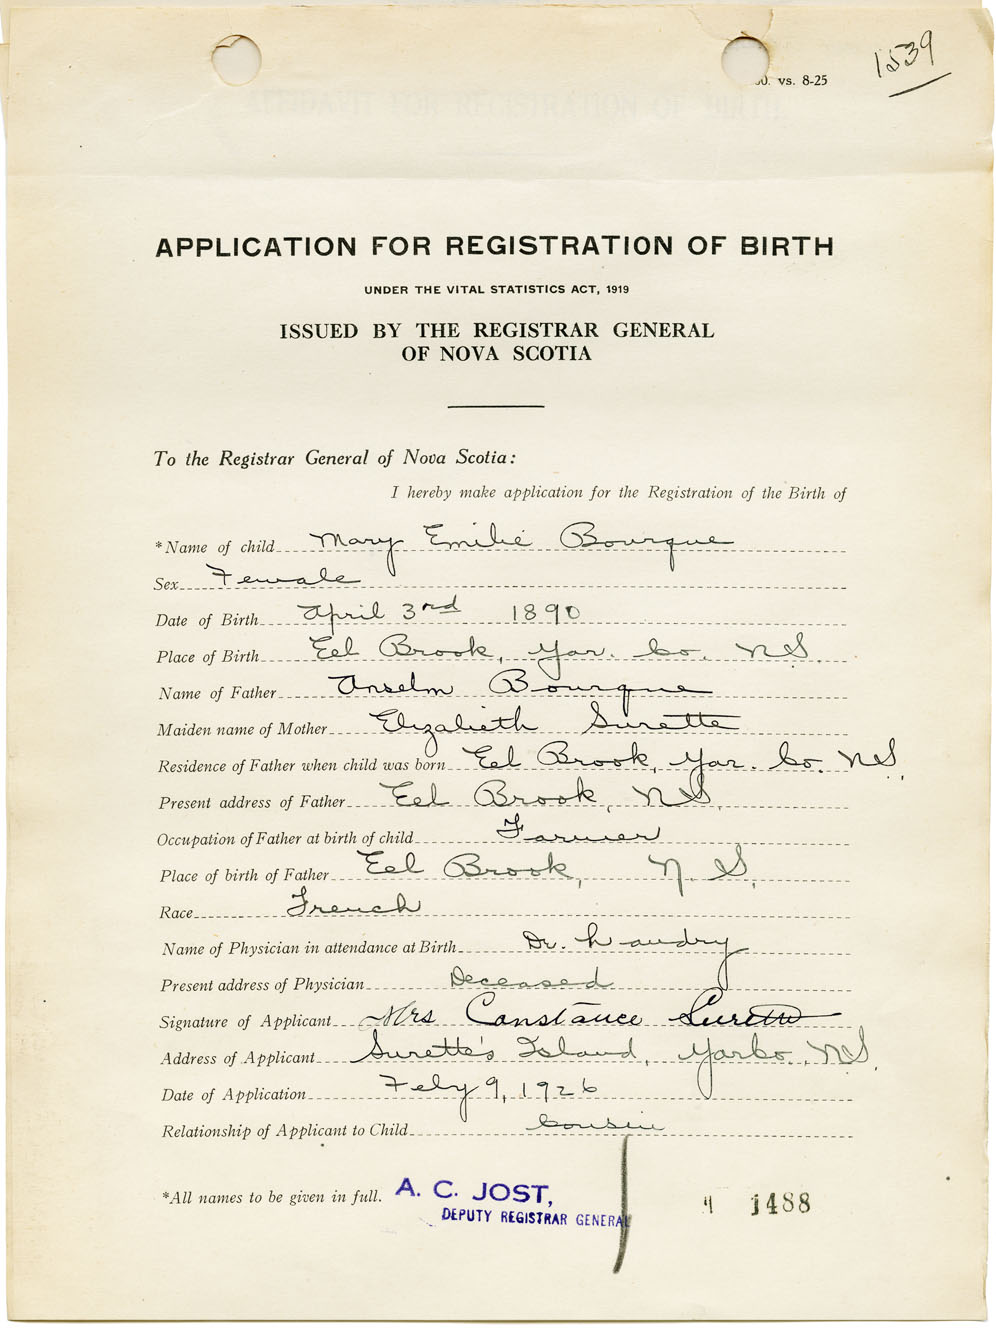 1539
00. vs. 8-25
APPLICATION FOR REGISTRATION OF BIRTH
UNDER THE VITAL STATISTICS ACT, 1919
ISSUED BY THE REGISTRAR GENERAL
OF NOVA SCOTIA
To the Registrar General of Nova Scotia:
I hereby make application for the Registration of the Birth of
*Name of child Mary Emilie Bourque
Sex Female
Date of Birth April 3rd 1890
Place of Birth Eel Brook, Yar. Co. N.S.
Name of Father Anselm Bourque
Maiden name of Mother Elizabeth Surette
Residence of Father when child was born Eel Brook, Yar. Co. N.S.
Present address of Father Eel Brook, N.S.
Occupation of Father at birth of child Farmer
Place of birth of Father Eel Brook, N.S.
Race French
Name of Physician in attendance at Birth Dr.
Present address of Physician Deceased
Signature of Applicant Mrs Constance Surette
Address of Applicant Surette's Island, Yar Co. N.S.
Date of Application Feby 9, 1926
Relationship of Applicant to Child Cousin
*All names to be given in full. A. C. JOST,
DEPUTY REGISTRAR GENERAL
1488